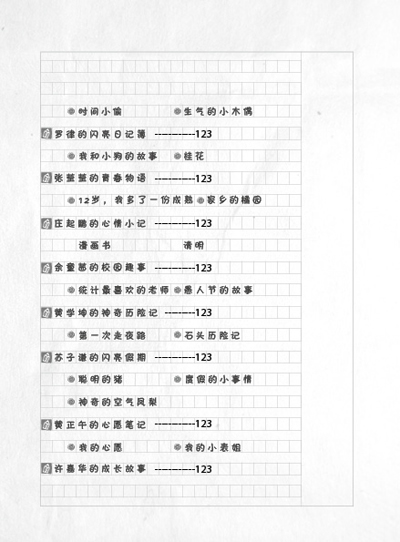 时间小偷 生气的小木偶
罗律的闪亮日记簿 ----------123
我和小狗的故事 桂花
张莹莹的青春物语 ----------123
12岁，我多了一份成熟 家乡的橘园
庄起鹏的心情小记 ----------123
漫画书 清明
余童茜的校园趣事 ----------123
统计最喜欢的老师 愚人节的故事
黄学坤的神奇历险记 ----------123
第一次走夜路 石头历险记
苏子谦的闪亮假期 ----------123
聪明的猪 度假的小事情
神奇的空气凤梨
黄正午的心愿笔记 ----------123
我的心愿 我的小表姐
许嘉华的成长故事 ----------123